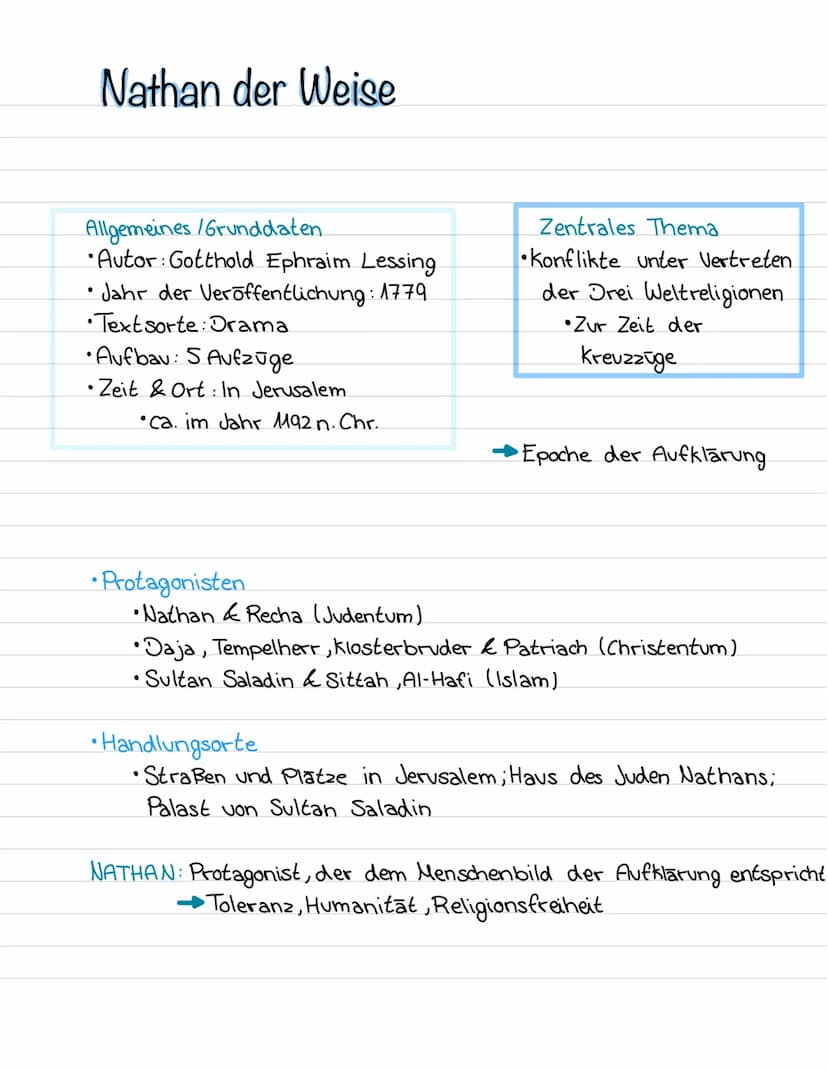 Nathan der Weise
Allgemeines / Grunddaten
• Autor: Gotthold Ephraim Lessing
• Jahr der Veröffentlichung: 1779
• Textsorte: Drama
• Aufbau: 5 Aufzüge
• Zeit & Ort: In Jerusalem
• ca. im Jahr 1192 n. Chr.
Zentrales Thema
• Konflikte unter Vertreten
der Drei Weltreligionen
• Zur Zeit der
Kreuzzüge
→ Epoche der Aufklärung
• Protagonisten
• Nathan & Recha (Judentum)
• Daja, Tempelherr, Klosterbruder & Patriach (Christentum)
• Sultan Saladin & Sittah, Al-Hafi (Islam)
• Handlungsorte
• Straßen und Plätze in Jerusalem; Haus des Juden Nathans;
Palast von Sultan Saladin
NATHAN: Protagonist, der dem Menschenbild der Aufklärung entspricht
→ Toleranz, Humanität, Religionsfreiheit